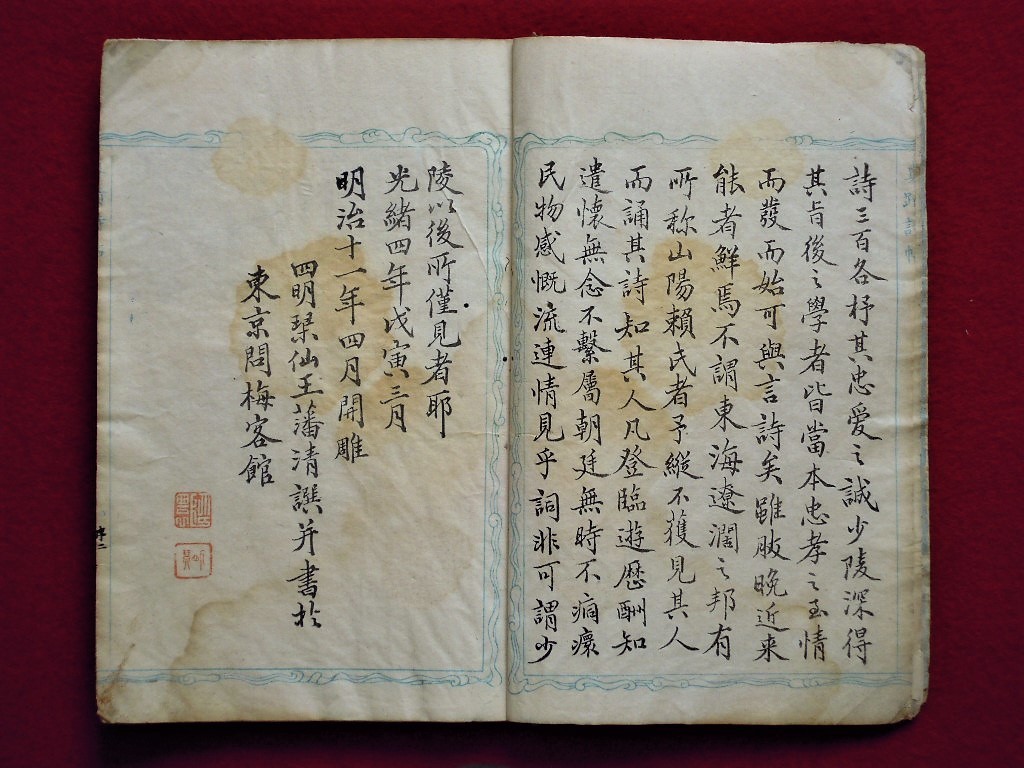 詩三百各抒其忠愛之誠少陵深得
其旨後之學者皆當本忠孝之至情
而發而始可與言詩矣雖晚近来
能者鮮焉不謂東海遼濶之邦有
所称山陽頼氏者予縦不獲見其人
而誦其詩知其人凡登臨遊歷酬知
遣懷無念不繫屬朝廷無時不痌瘝
民物感慨流連情見乎詞非可謂少
陵以後所僅見者耶
光緒四年戊寅三月
明治十一年四月開雕
四明琹仙王藩清譔并書於
東京問梅客館
序二